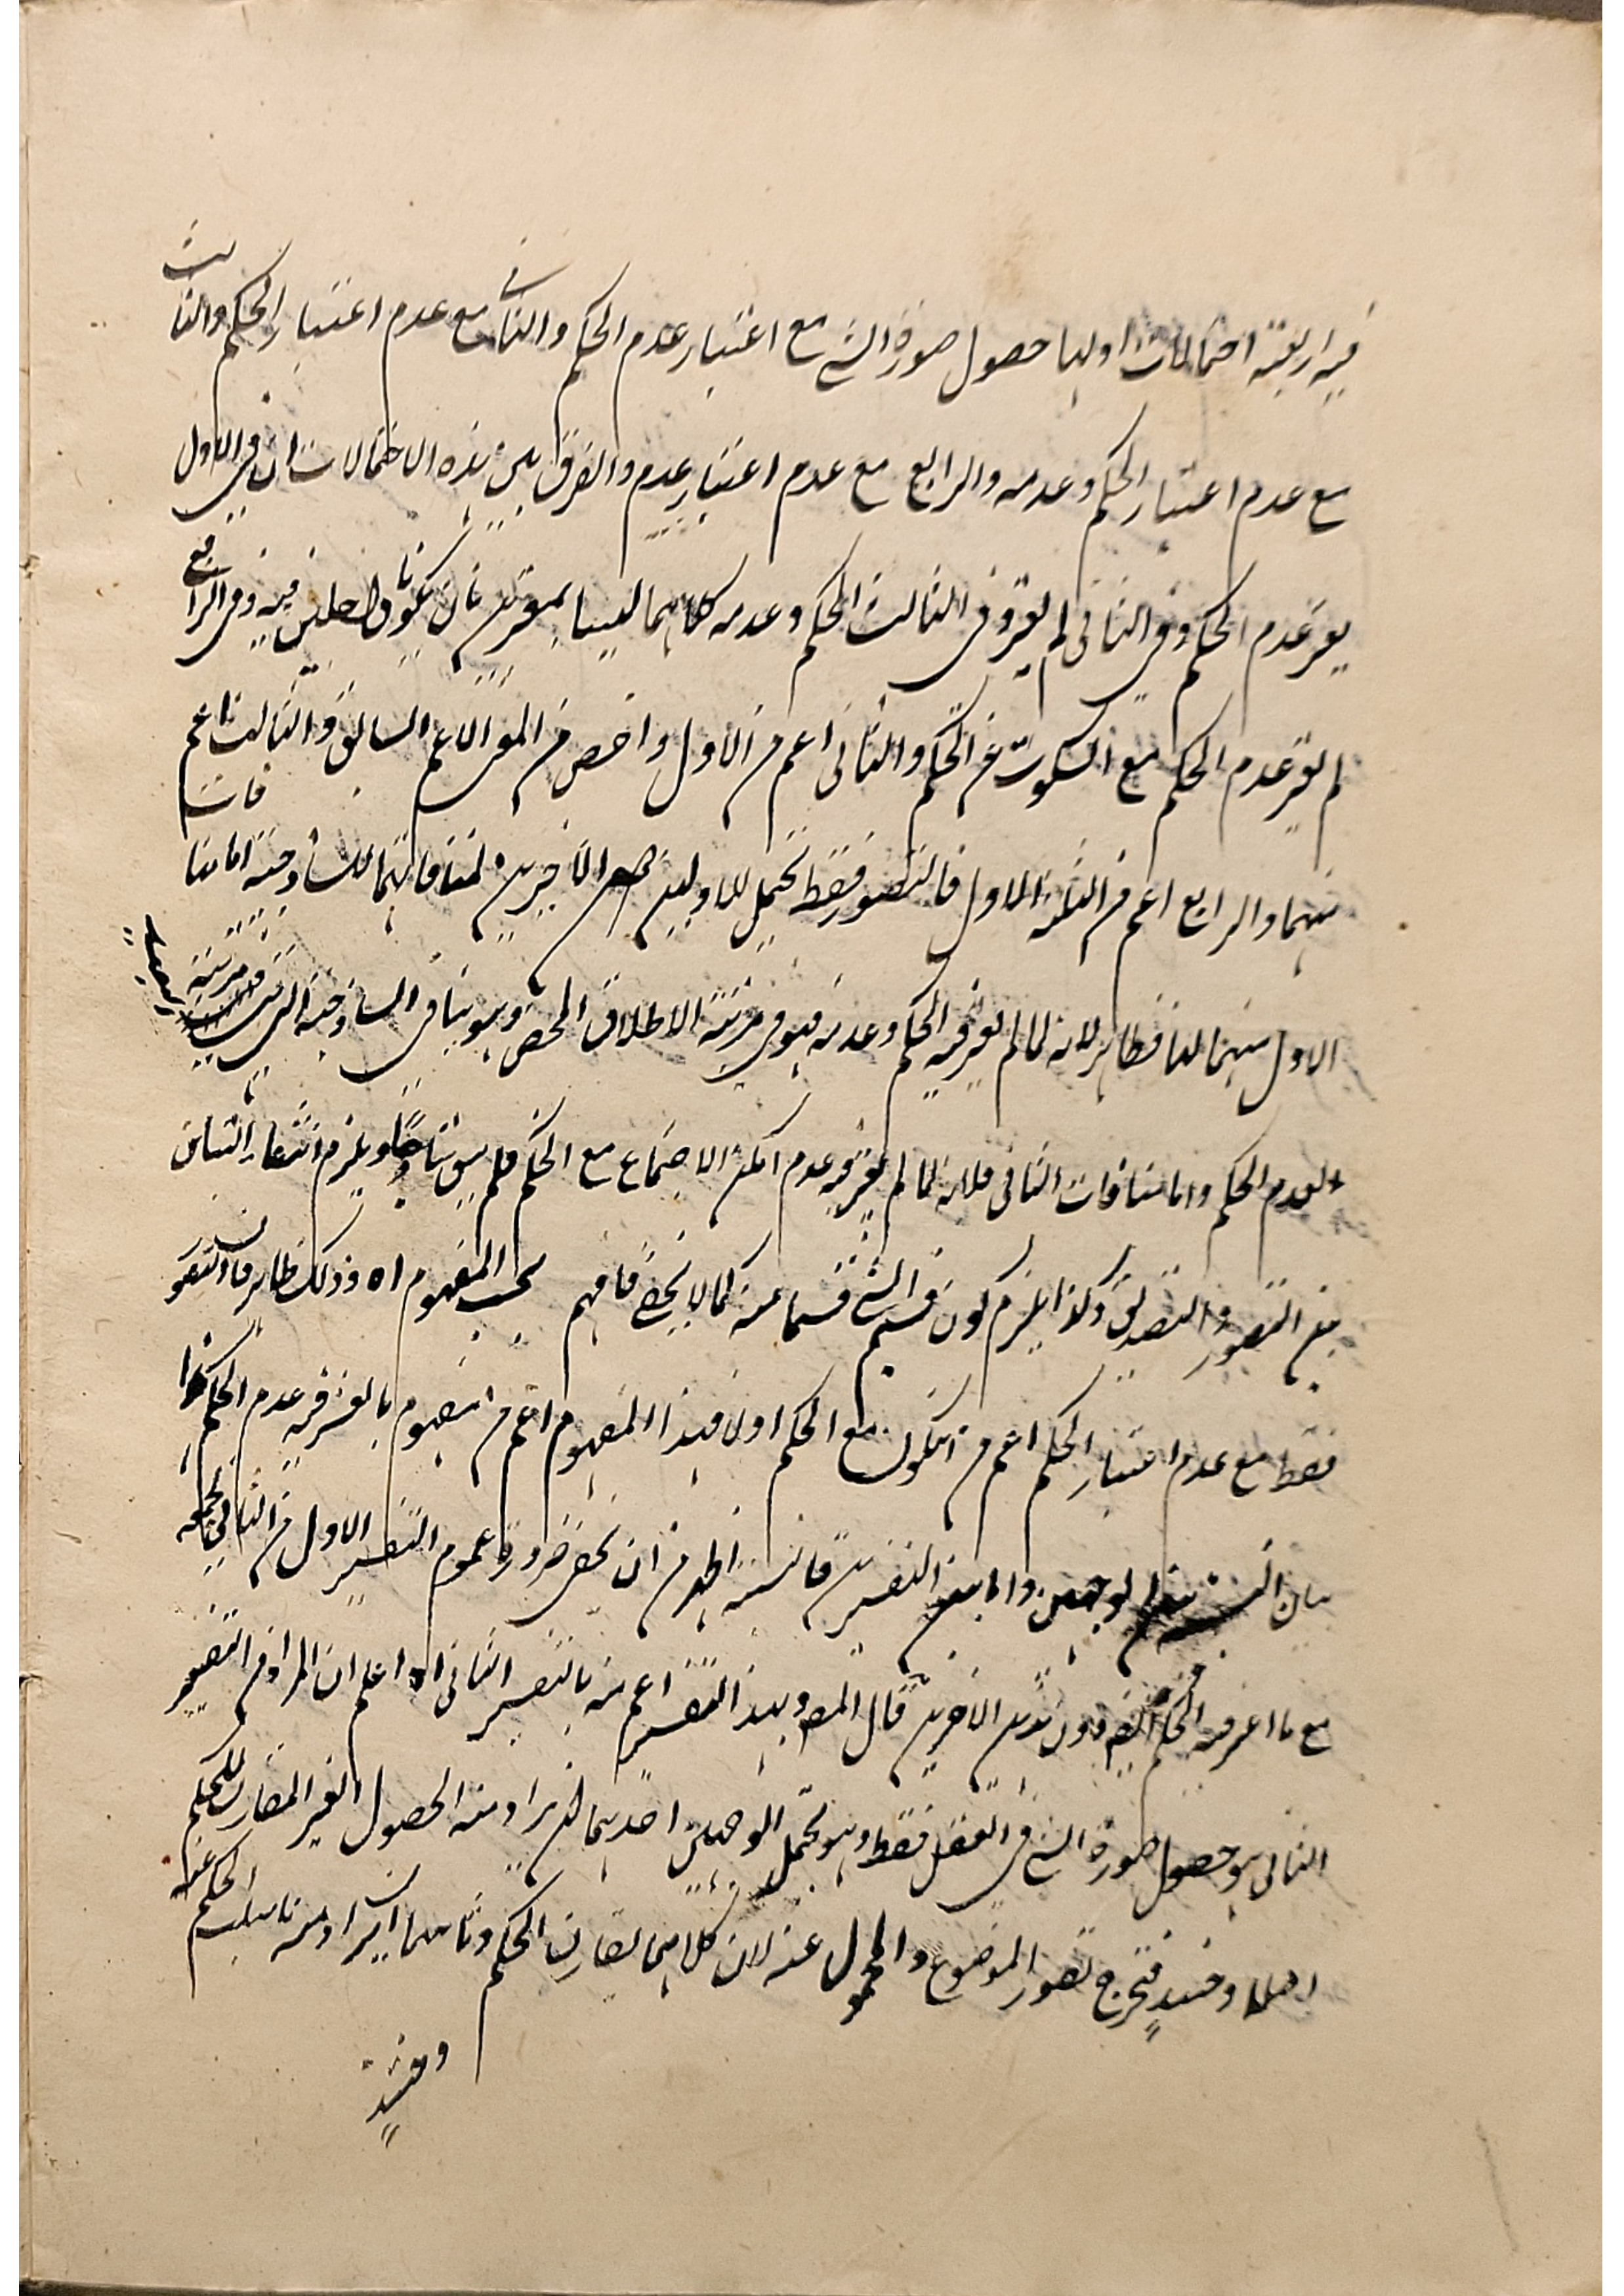 فيه اربعة احتمالات اولها حصول صورة الشئ مع اعتبار عدم الحكم والثانى مع عدم اعتبار الحكم والثالث
مع عدم اعتبار الحكم وعدمه والرابع مع عدم اعتبار عدم والفرق بين هذه الاحتمالات ان فى الاول
يعتبر عدم الحكم وفى الثانى لم يعتبر وفى الثالث الحكم وعدمه كلاهما ليسا بمعتبرين بان يكونا داخلين فيه وفى الرابع
لم يعتبر عدم الحكم مع السكوت عن الحكم والثانى اعم من الاول واخص من المعنى الاعم السابق والثالث اعم
منهما والرابع اعم من الثلثة الاول فالتصور فقط يحتمل للاولين الاخيرين لمنافاتهما للساذجية اما منافات
الاول منهما لها فظاهر لانه لما لم يعتبر فيه الحكم وعدمه فهو فى مرتبة الاطلاق المحض وهو ينافى الساذجية التى مرتبة
لعدم الحكم واما منافات الثانى فلانه لما لم يعتبر فيه عدم امكن الاجتماع مع الحكم فلم يبق ساذجا ويلزم انتفاء التباين
بين التصور والتصديق وكذا يلزم كون قسيم الشئ قسما منه كما لا يخفى فافهم بحسب المفهوم اه وذلك ظاهر فان التصور
فقط مع عدم اعتبار الحكم اعم من ان يكون مع الحكم اولا فهذا المفهوم اعم من مفهوم ما يعتبر فيه عدم الحكم هذا
بيان النسبة بين الوجهين واما بين التفسيرين فالنسبة اظهر من ان يخفى ضرورة عموم التفسير الاول من الثانى لجمعه
مع ما اعتبر فيه الحكم ايضا دون هذين الاخيرين قال المصـ وبهذا التفسير اعم منه بالتفسير الثانى اه اعلم ان المراد من التفسير
الثانى هو حصول صورة الشئ فى العقل فقط وهو يحتمل الوجهين احدهما ان يراد منه الحصول الغير المقارن للحكم
اصلا وحينئذ فتخرج تصور الموضوع والمحمول عنه لان كلا منهما يقارن الحكم وثانيهما ان يراد منه ما سلب الحكم عنه
وحينئذ